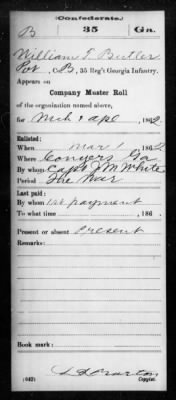 (Confederate.)
B 35 Ga.
William T. Butler
Pvt, Co. B, 35 Reg't Georgia Infantry.
Appears on
Company Muster Roll
of the organization named above,
for Mch & Apl, 1862
Enlisted:
When Mar 1, 1862
Where Conyers Ga
By whom Capt J M White
Period The War
Last paid:
By whom 1st payment
To what time , 186 .
Present or absent Present
Remarks:
Book mark:
(642)
Copyist.